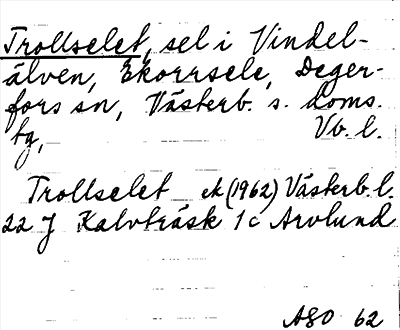 Trollselet, sel i Vindel-
älven, Ekorrsele, Deger-
fors sn, Västerb. s. doms.
tg, Vb. l.
Trollselet ek (1962) Västerb. l.
22 J Kalvträsk 1c Arvlund
ASO 62